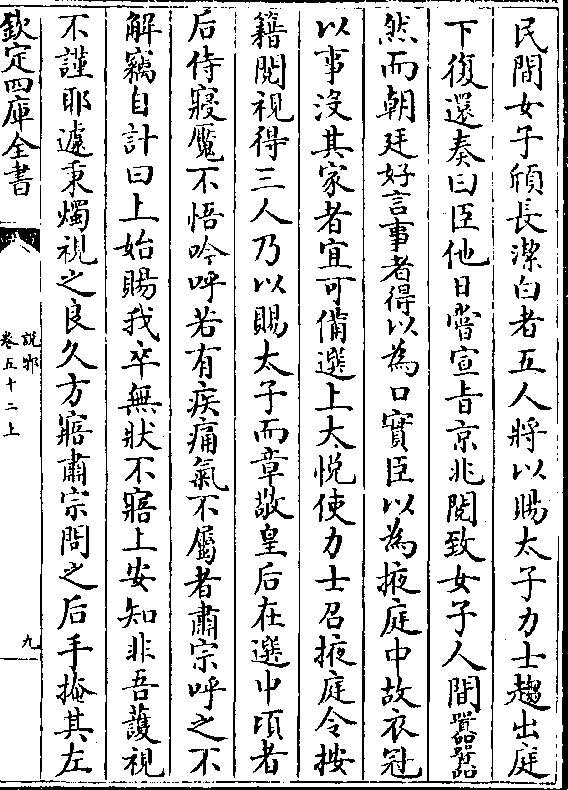 民間女子頎長潔白者五人將以賜太子力士趨出庭
下復還奏曰臣他日嘗宣旨京兆閱致女子人間囂囂
然而朝廷好言事者得以為口實臣以為掖庭中故衣冠
以事沒其家者宜可備選上大悅使力士召掖庭令按
籍閱視得三人乃以賜太子而章敬皇后在選中頃者
后侍寢魘不悟吟呼若有疾痛氣不屬者肅宗呼之不
解竊自計曰上始賜我卒無狀不寤上安知非吾護視
不謹耶遽秉燭視之良久方寤肅宗問之后手掩其左
欽定四庫全書
說郛
卷五十二上
九